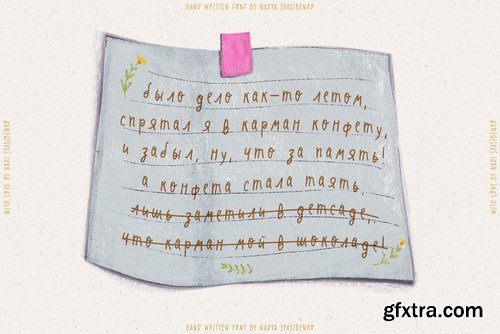 HAND WRITTEN FONT BY NADYA SPASIBENKO
было дело как-то летом,
спрятал я в карман конфету,
и забыл, ну, что за память!
а конфета стала таять.
лишь заметили в детсаде,
что карман мой в шоколаде!
WITH LOVE BY NADI SPASIBENKO
WITH LOVE BY NADI SPASIBENKO
HAND WRITTEN FONT BY NADYA SPASIBENKO
gfxtra.com